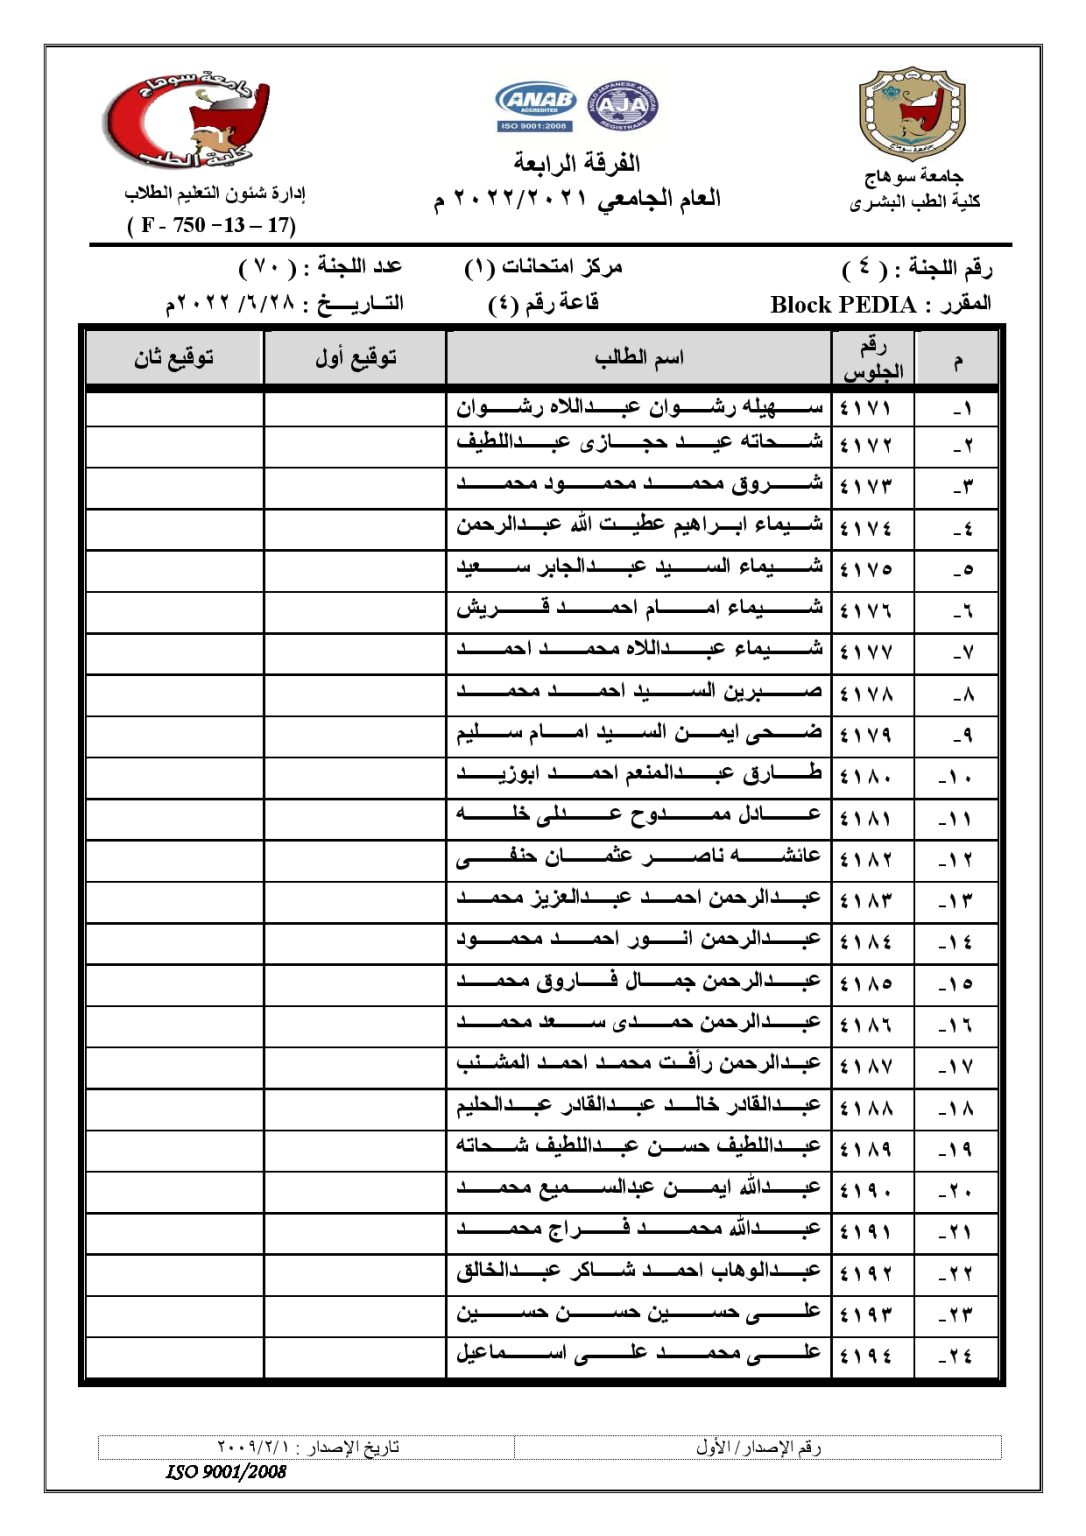 جامعة سوهاج
كلية الطب
ANAB
ACCREDITED
ISO 9001:2008
ANGLO JAPANESE AMERICAN
AJA
REGISTRARS
جامعة سوهاج
جامعة سوهاج
كلية الطب البشرى
الفرقة الرابعة
العام الجامعي ٢٠٢٢/٢٠٢١ م
إدارة شئون التعليم الطلاب
( F - 750 –13 – 17)
رقم اللجنة : ( ٤ ) مركز امتحانات (١) عدد اللجنة : ( ٧٠ )
المقرر : Block PEDIA قاعة رقم (٤) التـاريـــخ : ٢٨/٦/ ٢٠٢٢م
م رقم الجلوس اسم الطالب توقيع أول توقيع ثان
١- ٤١٧١ سهيله رشوان عبداللاه رشوان
٢- ٤١٧٢ شحاته عيد حجازى عبداللطيف
٣- ٤١٧٣ شروق محمد محمود محمد
٤- ٤١٧٤ شيماء ابراهيم عطيت الله عبدالرحمن
٥- ٤١٧٥ شيماء السيد عبدالجابر سعيد
٦- ٤١٧٦ شيماء امام احمد قريش
٧- ٤١٧٧ شيماء عبداللاه محمد احمد
٨- ٤١٧٨ صبرين السيد احمد محمد
٩- ٤١٧٩ ضحى ايمن السيد امام سليم
١٠- ٤١٨٠ طارق عبدالمنعم احمد ابوزيد
١١- ٤١٨١ عادل ممدوح عدلى خله
١٢- ٤١٨٢ عائشه ناصر عثمان حنفى
١٣- ٤١٨٣ عبدالرحمن احمد عبدالعزيز محمد
١٤- ٤١٨٤ عبدالرحمن انور احمد محمود
١٥- ٤١٨٥ عبدالرحمن جمال فاروق محمد
١٦- ٤١٨٦ عبدالرحمن حمدى سعد محمد
١٧- ٤١٨٧ عبدالرحمن رأفت محمد احمد المشنب
١٨- ٤١٨٨ عبدالقادر خالد عبدالقادر عبدالحليم
١٩- ٤١٨٩ عبداللطيف حسن عبداللطيف شحاته
٢٠- ٤١٩٠ عبدالله ايمن عبدالسميع محمد
٢١- ٤١٩١ عبدالله محمد فراج محمد
٢٢- ٤١٩٢ عبدالوهاب احمد شاكر عبدالخالق
٢٣- ٤١٩٣ على حسين حسن حسين
٢٤- ٤١٩٤ على محمد على اسماعيل
رقم الإصدار/ الأول تاريخ الإصدار : ٢٠٠٩/٢/١
ISO 9001/2008